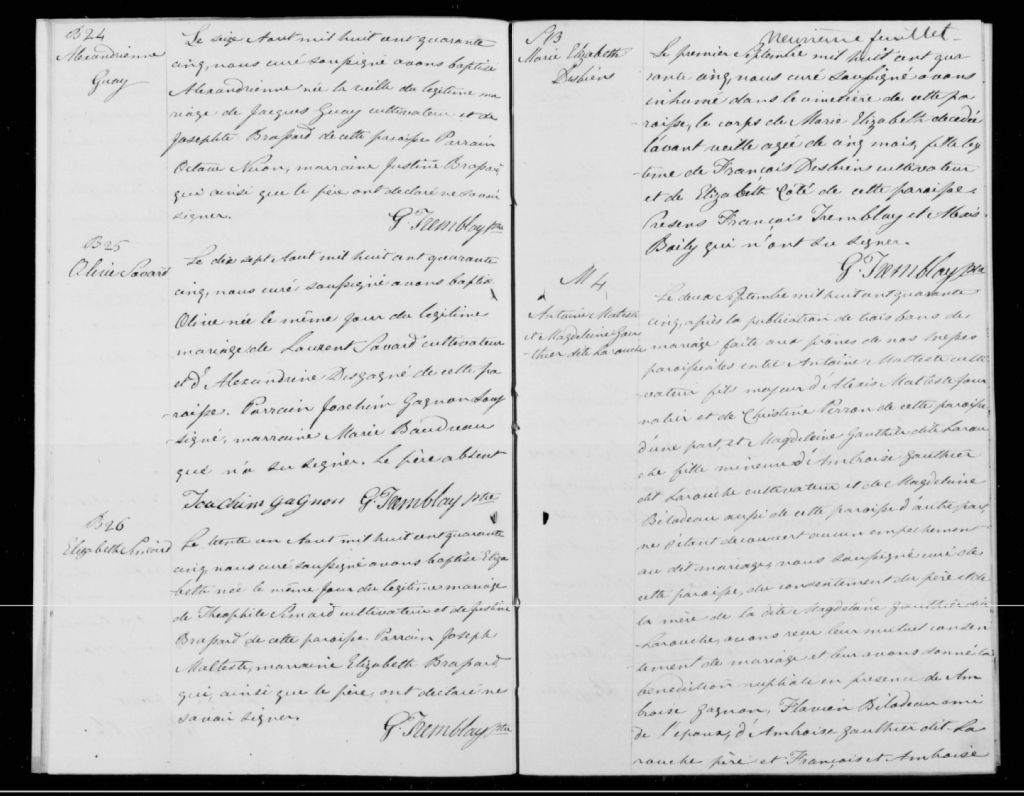 B24
Alexandrienne
Guay
Le seize Aout mil huit cent quarante
cinq, nous curé soussigné avons baptisé
Alexandrienne née la veille du légitime ma
riage de Jacques Guay cultivateur et de
Josephte Brassard de cette paroisse Parrain
Octave marraine Justine Brassard
qui ainsi que le père ont declaré ne savoir
signer.
G. Tremblay ptre
B25
Olive Savard
Le dix sept Aout mil huit cent quarante
cinq, nous curé soussigné avons baptisé
Olive née le même jour du légitime
mariage de Laurent Savard cultivateur
et d'Alexandrine Desgagné de cette pa
roisse. Parrain Joachim Gagnon sous
signé, marraine Marie
qui n'a su signer. Le père absent
Joachim gagnon G. Tremblay ptre
B26
Elizabeth Simard
Le trente un Aout mil huit cent quarante
cinq nous curé soussigné avons baptisé Eliza
beth née le même jour du légitime mariage
de Théophile Simard cultivateur et de Justine
Brassard de cette paroisse. Parrain Joseph
Malteste, marraine Elizabeth Brassard
qui, ainsi que le père, ont declaré ne
savoir signer.
G. Tremblay ptre
Neuvième feuillet
Marie Elizabeth
Deshiens
Le premier Septembre mil huit cent qua
rante cinq, nous curé soussigné avons
inhumé dans le cimetière de cette pa
roisse, le corps de Marie Elizabeth decédée
l'avant veille agée de cinq mois, fille légi
time de François Deshiens cultivateur
et de Elizabeth Côté de cette paroisse.
Presens François Tremblay et Alexis
Boily qui n'ont su signer.
G. Tremblay ptre
M 4
Antoine Malteste
et Magdeleine Gau
thier dite Larouche
Le deux Septembre mil huit cent quarante
cinq, après la publication de trois bans de
mariage faite aux prônes de nos messes
paroissiales entre Antoine Malteste culti
vateur fils majeur d'Alexis Malteste jour
nalier et de Christine Perron de cette paroisse
d'une part, et Magdeleine Gauthier dite Larou
che fille mineure d'Ambroise Gauthier
dit Larouche cultivateur et de Magdeleine
Bilodeau aussi de cette paroisse d'autre part,
ne s'étant découvert aucun empechement
au dit mariage, nous soussigné curé de
cette paroisse, du consentement du père et de
la mère de la dite Magdeleine Gauthier dite
Larouche, avons reçu leur mutuel consen
tement de mariage et leur avons donné la
bénédiction nuptiale en presence de Am
broise Gagnon, Flavien Bilodeau ami
de l'époux, d'Ambroise Gauthier dit La
rouche père et François et Ambroise